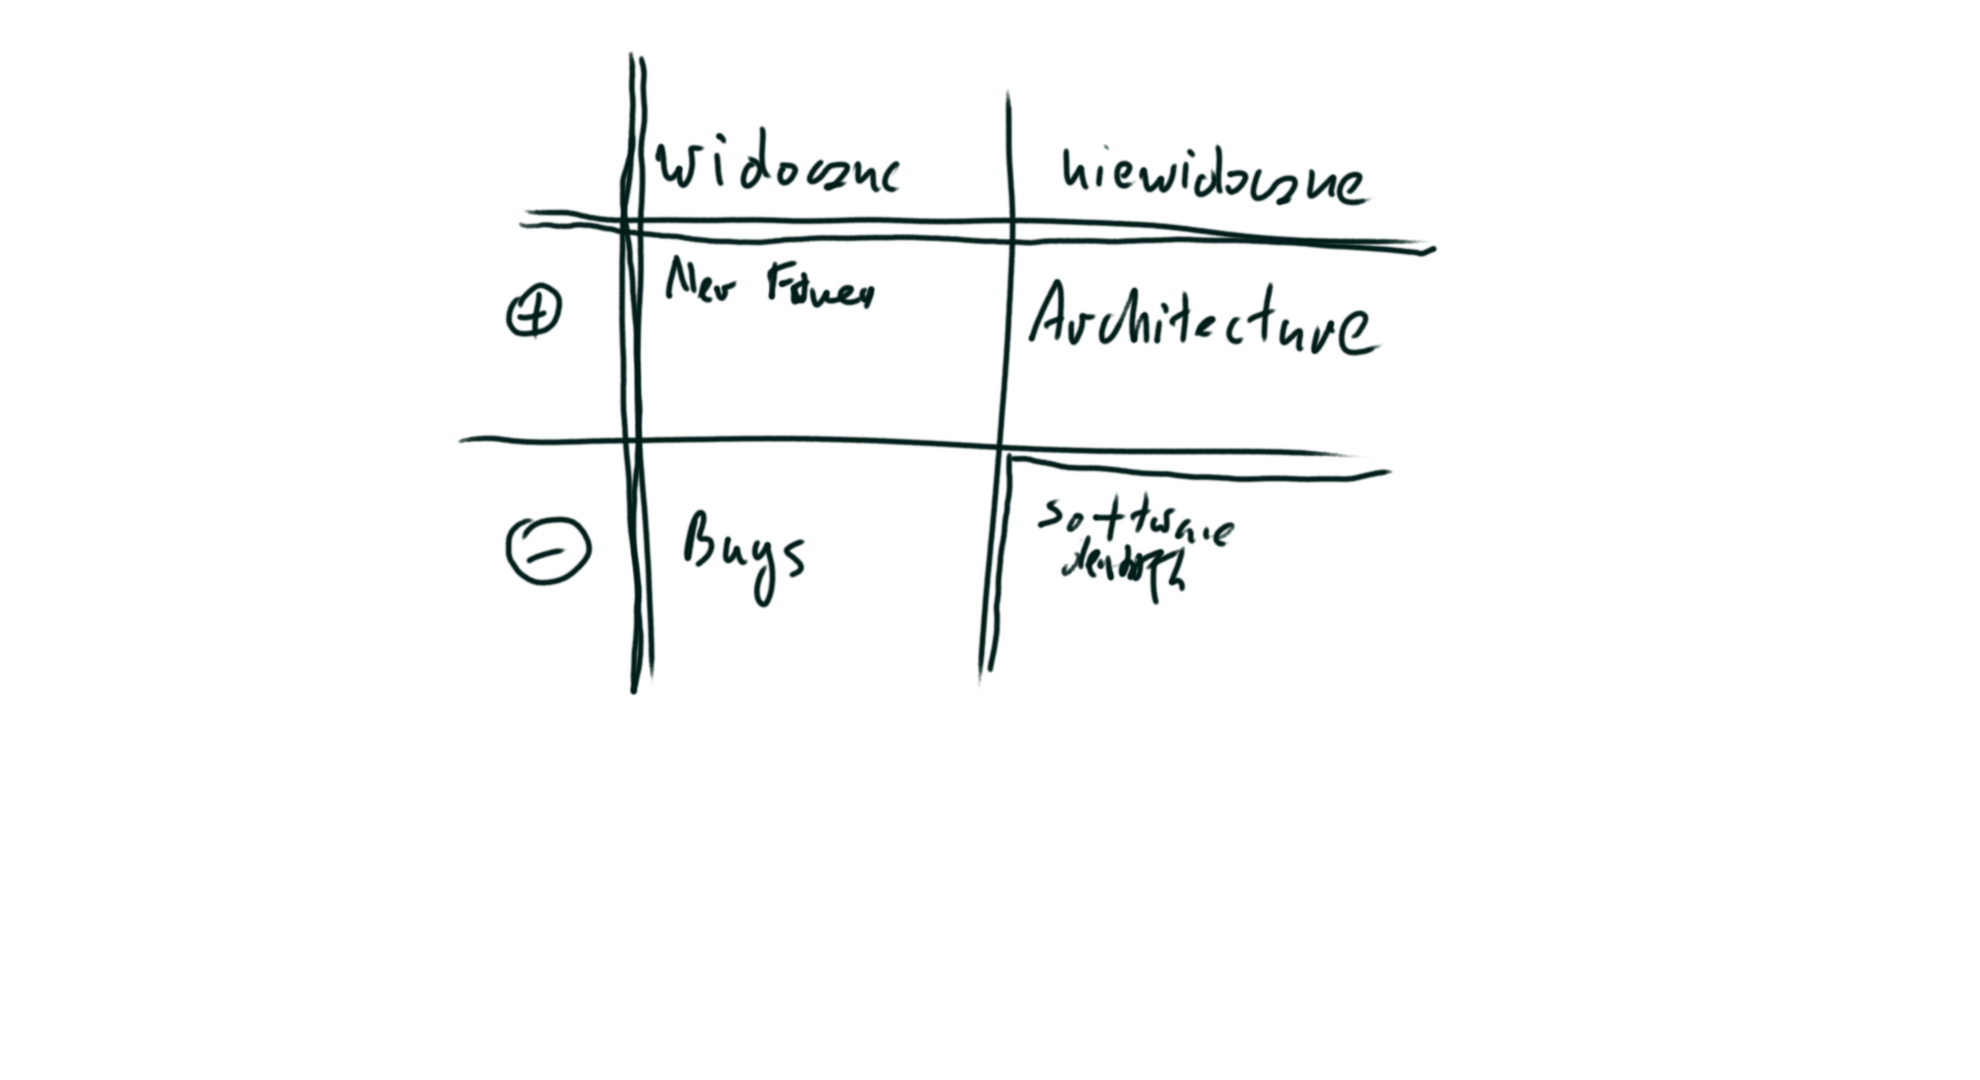 widoczne niewidoczne
+ New Architecture
- Bugs software